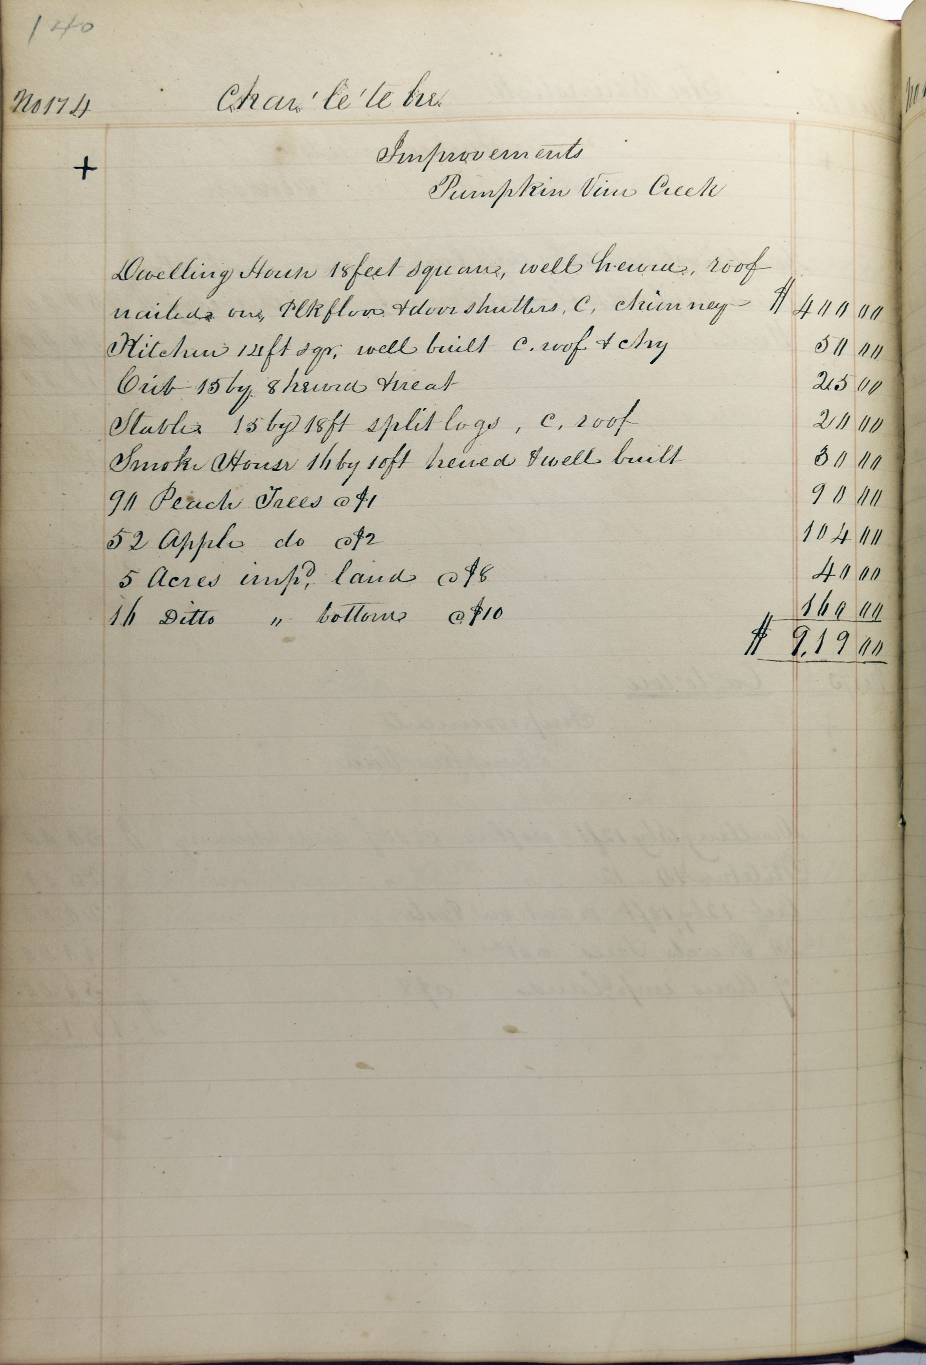 140
No 174 Char'le'te he.
+ Improvements
Pumpkin Vine Creek
Dwelling House 18 feet square, well hewed, roof
nailed on, Plk floor & door shutters, C. chimney $ 400 00
Kitchen 14 ft sqr, well built C. roof & chy 50 00
Crib 15 by 8 hewed & neat 25 00
Stable 15 by 18 ft split logs, C. roof 20 00
Smoke House 16 by 10 ft hewed & well built 30 00
90 Peach Trees @ $1 90 00
52 Apple do @ $2 104 00
5 Acres impd, land @ $8 40 00
16 Ditto " bottom @ $10 160 00
$ 9.19 00